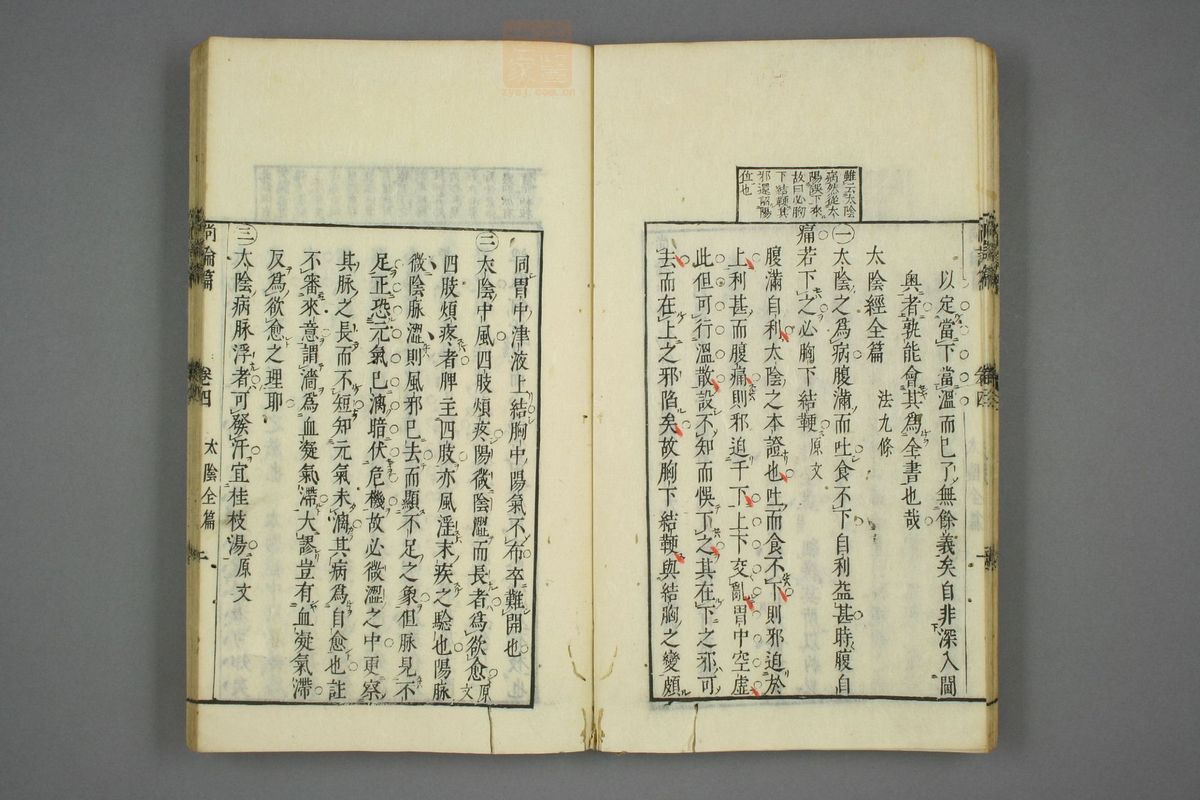 雖云太陰
病然從太
陽誤下來
故曰必胸
下結鞕其
邪還留陽
位也
以定當下當溫而已了無餘義矣自非深入閫
奧者孰能會其爲全書也哉
太陰經全篇 法九條
㊀太陰之爲病腹滿而吐食不下自利益甚時腹自
痛若下之必胸下結鞕 原文
腹滿自利太陰之本證也吐而食不下則邪迫於
上利甚而腹痛則邪迫于下上下交亂胃中空虛
此但可行溫散設不知而悞下之其在下之邪可
去而在上之邪陷矣故胸下結鞕與結胸之變頗
同胃中津液上結胸中陽氣不布卒難開也
㊁太陰中風四肢煩疼陽微陰濇而長者爲欲愈 原文
四肢煩疼者脾主四肢亦風淫末疾之驗也陽脉
微陰脉濇則風邪已去而顯不足之象但脉見不
足正恐元氣已漓暗伏危機故必微濇之中更察
其脉之長而不短知元氣未漓其病爲自愈也註
不審來意謂濇爲血凝氣滯大謬豈有血凝氣滯
反爲欲愈之理耶
㊂太陰病脉浮者可發汗宜桂枝湯 原文
尚論篇 卷四 太陰全篇 一
zycj.com.cn